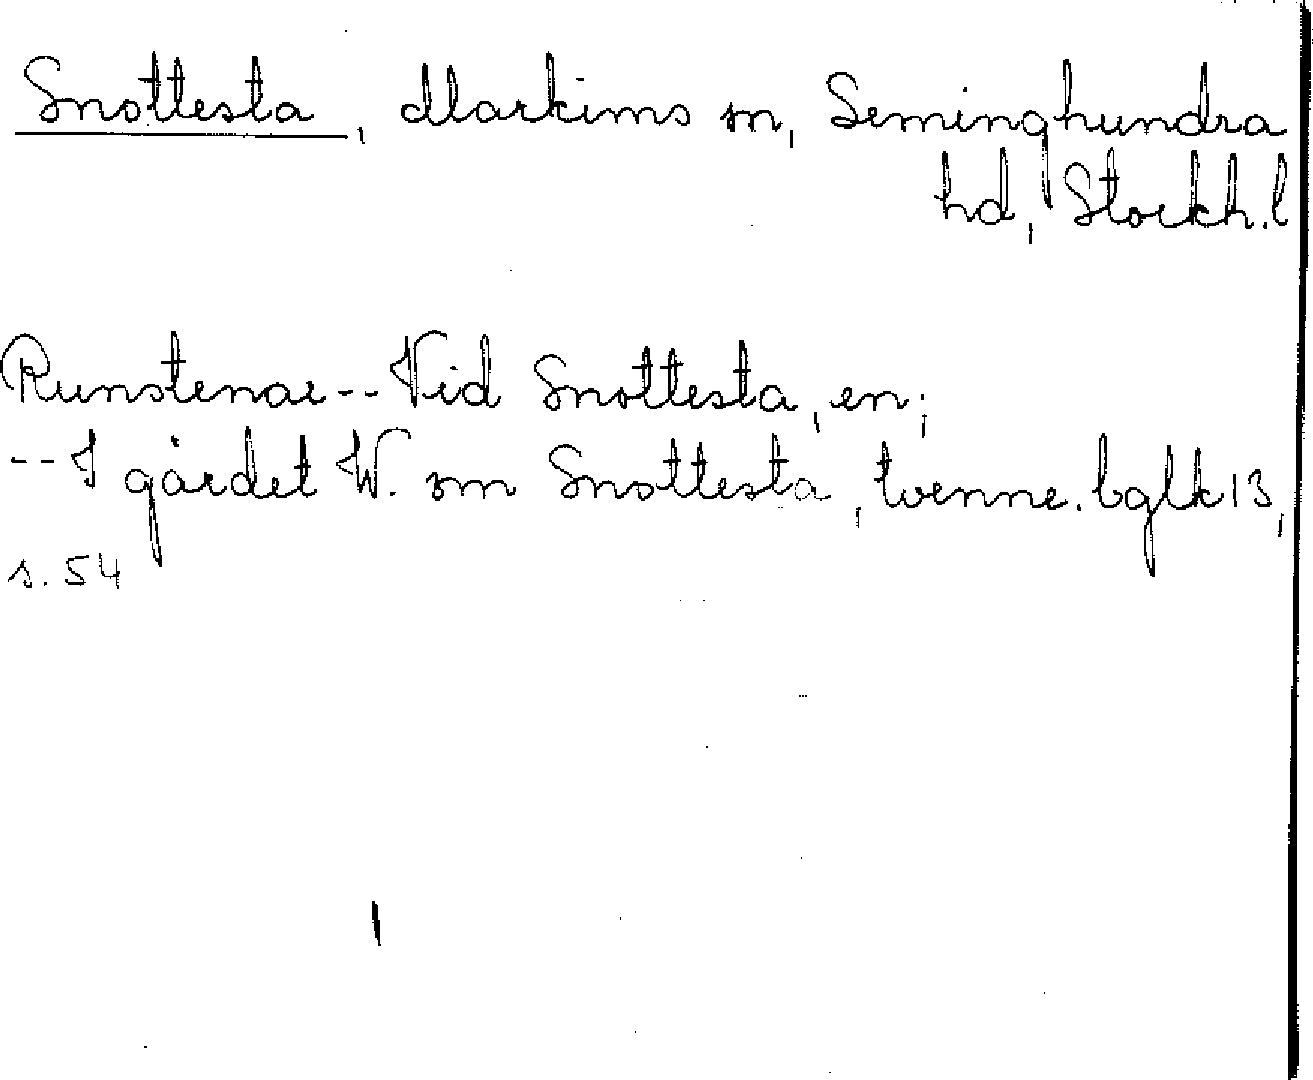 Snottesta, Markims sn, Seminghundra
hd, Stockh.l
Runstenar -- Vid Snottesta, en;
-- I gärdet W. om Snottesta, twenne. bglk 13,
s. 54